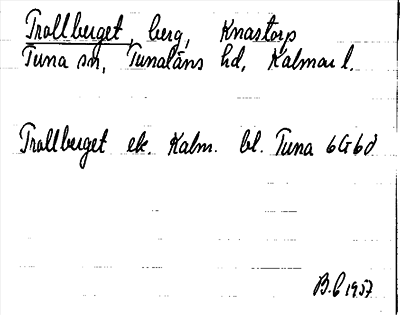 Trollberget, berg, Knastorp
Tuna sn, Tunaläns hd, Kalmar l.
Trollberget ek. Kalm. bl. Tuna 6G6d
B.C 1957